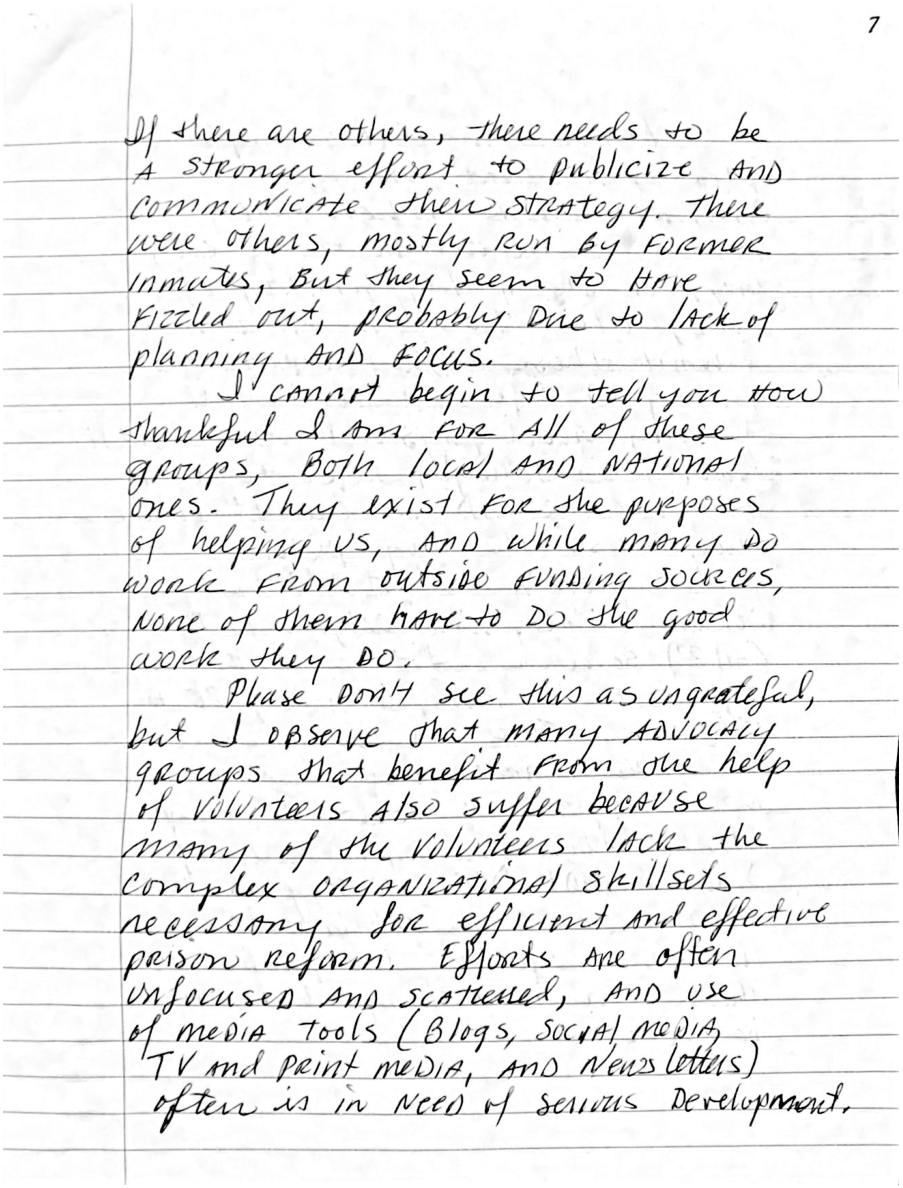 7
If there are others, there needs to be
A stronger effort to publicize AND
communicate their strategy. There
were others, mostly run by former
inmates, But they seem to Have
fizzled out, probably Due to lack of
planning AND focus.
I cannot begin to tell you How
thankful I Am for All of these
groups, Both local AND NATIONAL
ones. They exist for the purposes
of helping us, AND while many Do
work from outside funding sources,
None of them have to Do the good
work they Do.
Please Don't see this as ungrateful,
but I observe that many ADVOCACY
groups that benefit from the help
of volunteers Also suffer because
many of the volunteers lack the
complex organizational skillsets
necessary for efficient and effective
prison reform. Efforts Are often
unfocused AND scattered, AND use
of media tools (Blogs, social media,
TV and print media, AND Newsletters)
often is in Need of serious Development.